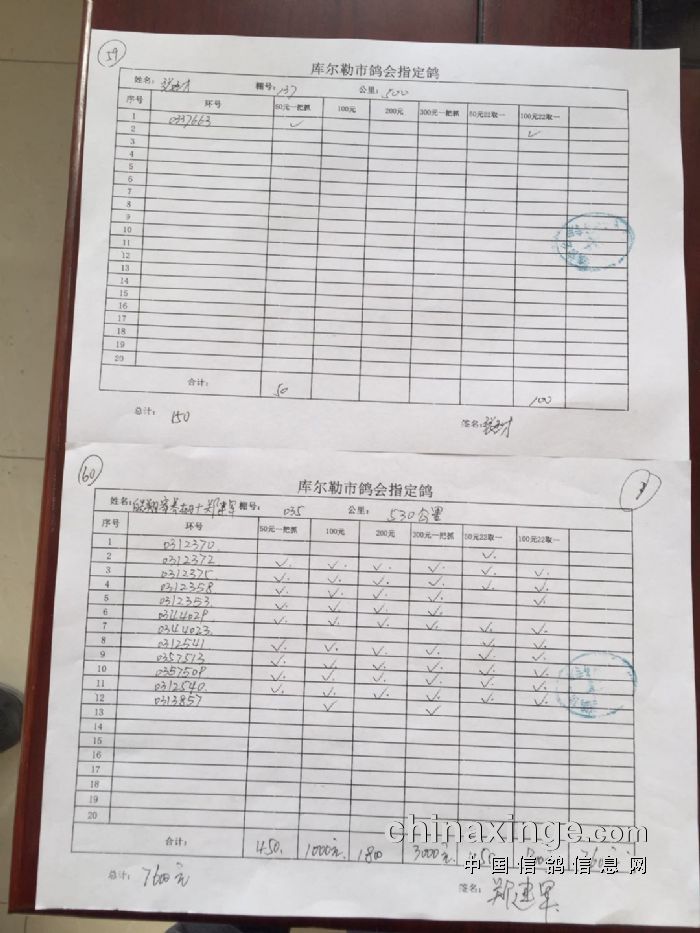 59
库尔勒市鸽会指定鸽
姓名： 棚号：137 公里：500
序号 环号 50元一把抓 100元 200元 300元一把抓 50元22取一 100元22取一
1 0337663 ✓ ✓
2
3
4
5
6
7
8
9
10
11
12
13
14
15
16
17
18
19
20
合计： 50 100
总计： 150 签名：
60
库尔勒市鸽会指定鸽
姓名： 郑建军 棚号： 035 公里： 530公里
序号 环号 50元一把抓 100元 200元 300元一把抓 50元22取一 100元22取一
1 0312370 ✓
2 0312372 ✓ ✓ ✓ ✓ ✓ ✓
3 0312375 ✓ ✓ ✓ ✓ ✓ ✓
4 0312358 ✓ ✓ ✓ ✓ ✓
5 0312353 ✓ ✓ ✓ ✓
6 0344029 ✓ ✓ ✓ ✓ ✓
7 0344023 ✓ ✓
8 0312541 ✓ ✓ ✓ ✓ ✓ ✓
9 0357513 ✓ ✓ ✓ ✓ ✓ ✓
10 0357509 ✓ ✓ ✓ ✓ ✓ ✓
11 0312540 ✓ ✓ ✓ ✓ ✓ ✓
12 0313857 ✓ ✓
13
14
15
16
17
18
19
20
合计： 450. 1000元. 1800 3000元. 450
总计： 7600元 签名： 郑建军
chinaxinge.com
中国信鸽信息网